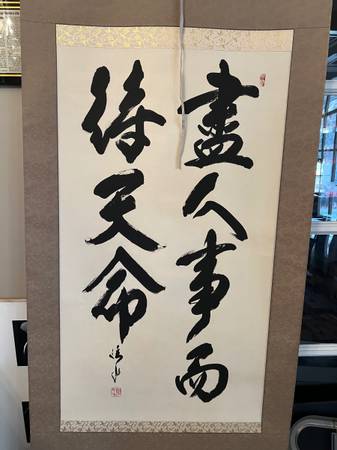 盡人事而
待天命